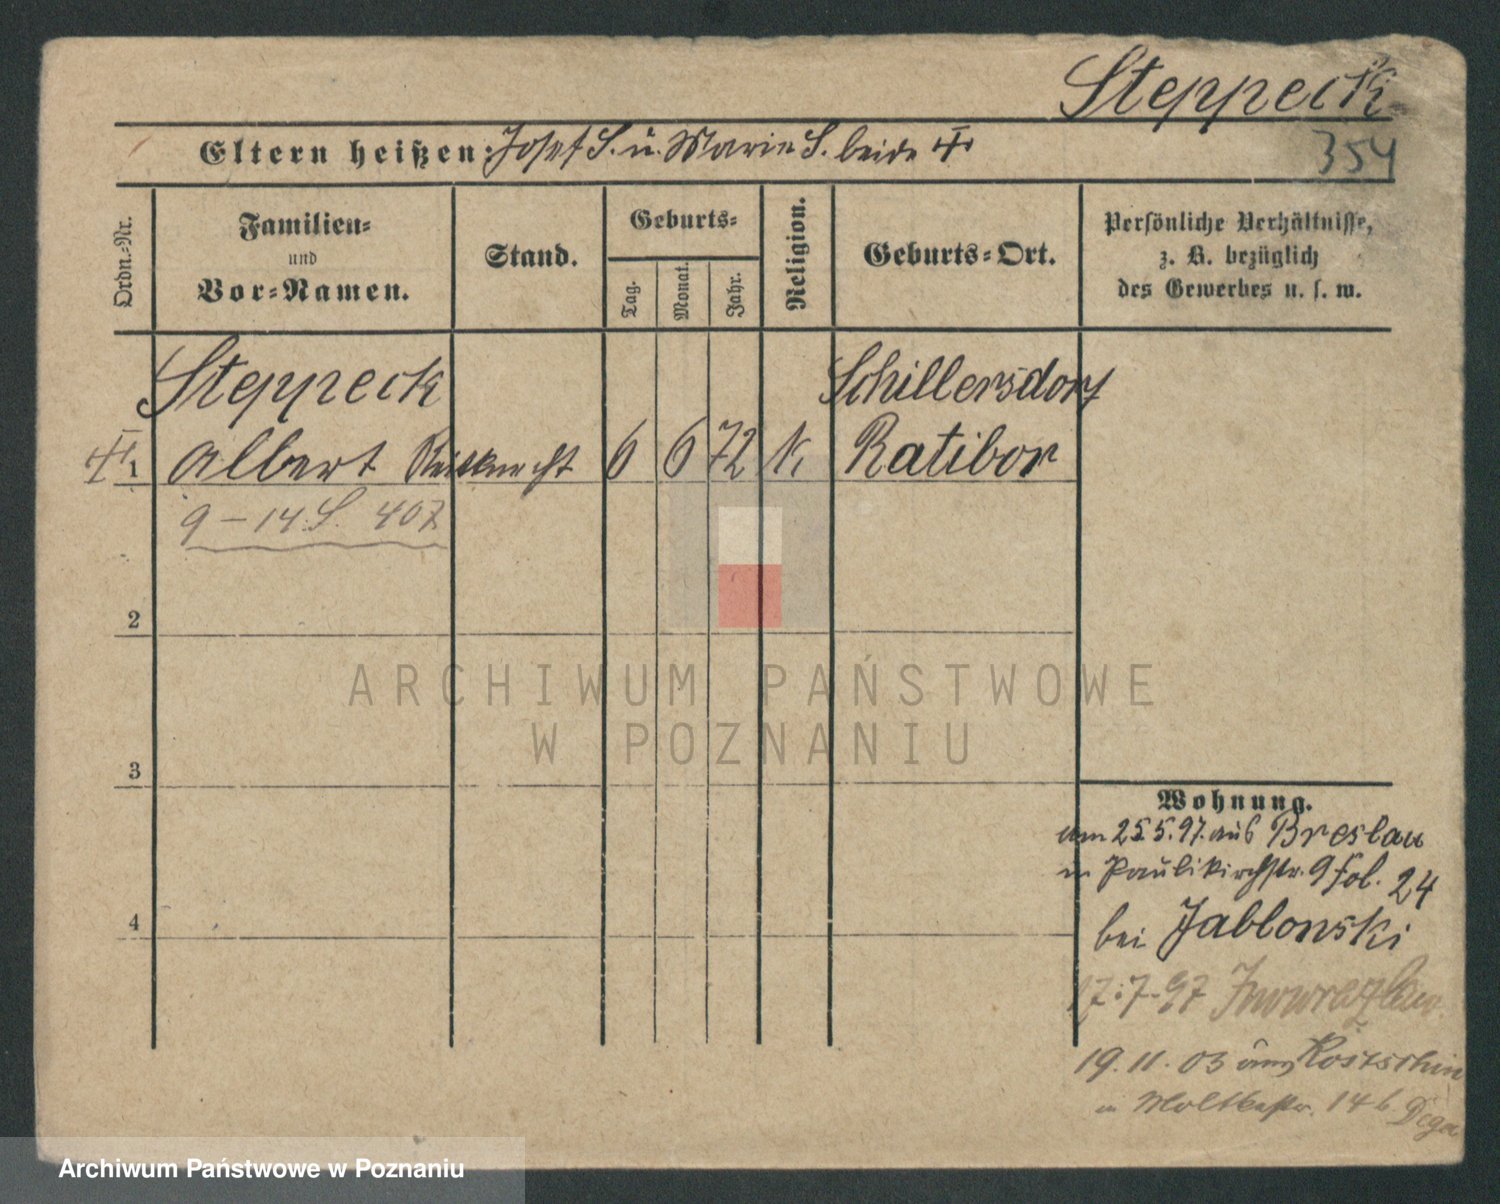 Steppeck
354
Eltern heißen: Josef S. u. Marie S. beide
Ordn.-Nr.
Familien-
und
Vor-Namen.
Stand.
Geburts-
Tag.
Monat.
Jahr.
Religion.
Geburts-Ort.
Persönliche Verhältnisse,
z. B. bezüglich
des Gewerbes u. s. w.
Steppeck
Schillersdorf
1 Albert Reitknecht 6 6 72 k. Ratibor
9-14. S. 407
2
3
4
ARCHIWUM PAŃSTWOWE
W POZNANIU
Wohnung.
am 25.5.97. aus Breslau
in Paulikirchstr. 9 fol. 24
bei Jablonski
17.7.97 Inowrazlaw
19.11.03 aus Kostschin
in Moltkestr. 14b
Archiwum Państwowe w Poznaniu